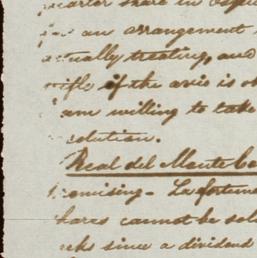 quarter share in
for an arrangement
actually treating, and
rifle if the axis is
am willing to take
solution.
Real del Monte
promising - La fortun
shares cannot be sol
since a dividend